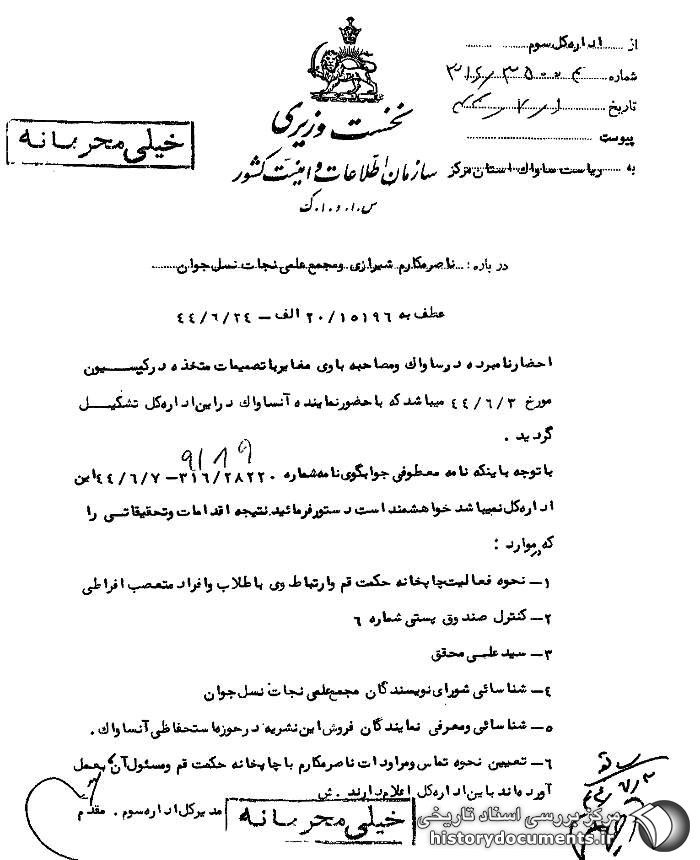 از اداره کل سوم
شماره
تاریخ
پیوست
به ریاست ساواک استان مرکز
نخست وزیری
سازمان اطلاعات و امنیت کشور
س.ا.و.ا.ک
خیلی محرمانه
درباره : ناصر مکارم شیرازی و مجمع علمی نجات نسل جوان
عطف به ۲۰/۱۵۱۹۶ الف – ۴۴/۶/۲۴
احضار نامبرده در ساواک و مصاحبه با وی مغایر با تصمیمات متخذه در کمیسیون
مورخ ۴۴/۶/۳ میباشد که با حضور نماینده آنساواک در این اداره کل تشکیل
گردید .
۹۱۸۹
با توجه باینکه نامه معطوفی جوابگوی نامه شماره ۳۱۶/۲۸۲۲۰ – ۴۴/۶/۷ این
اداره کل نمیباشد خواهشمند است دستور فرمائید نتیجه اقدامات و تحقیقاتی را
که در موارد :
۱– نحوه فعالیت چاپخانه حکمت قم و ارتباط وی با طلاب و افراد متعصب افراطی
۲– کنترل صندوق پستی شماره ۶
۳– سید علمی محقق
۴– شناسائی شورای نویسندگان مجمع علمی نجات نسل جوان
۵– شناسائی و معرفی نمایندگان فروش این نشریه در حوزه استحفاظی آنساواک .
۶– تعیین نحوه تماس و مراودات ناصر مکارم با چاپخانه حکمت قم و مسئول آن بعمل
آورده اند باین اداره کل اعلام دارند . ش
مدیر کل اداره سوم . مقدم
خیلی محرمانه
مرکز بررسی اسناد تاریخی
historydocuments.ir